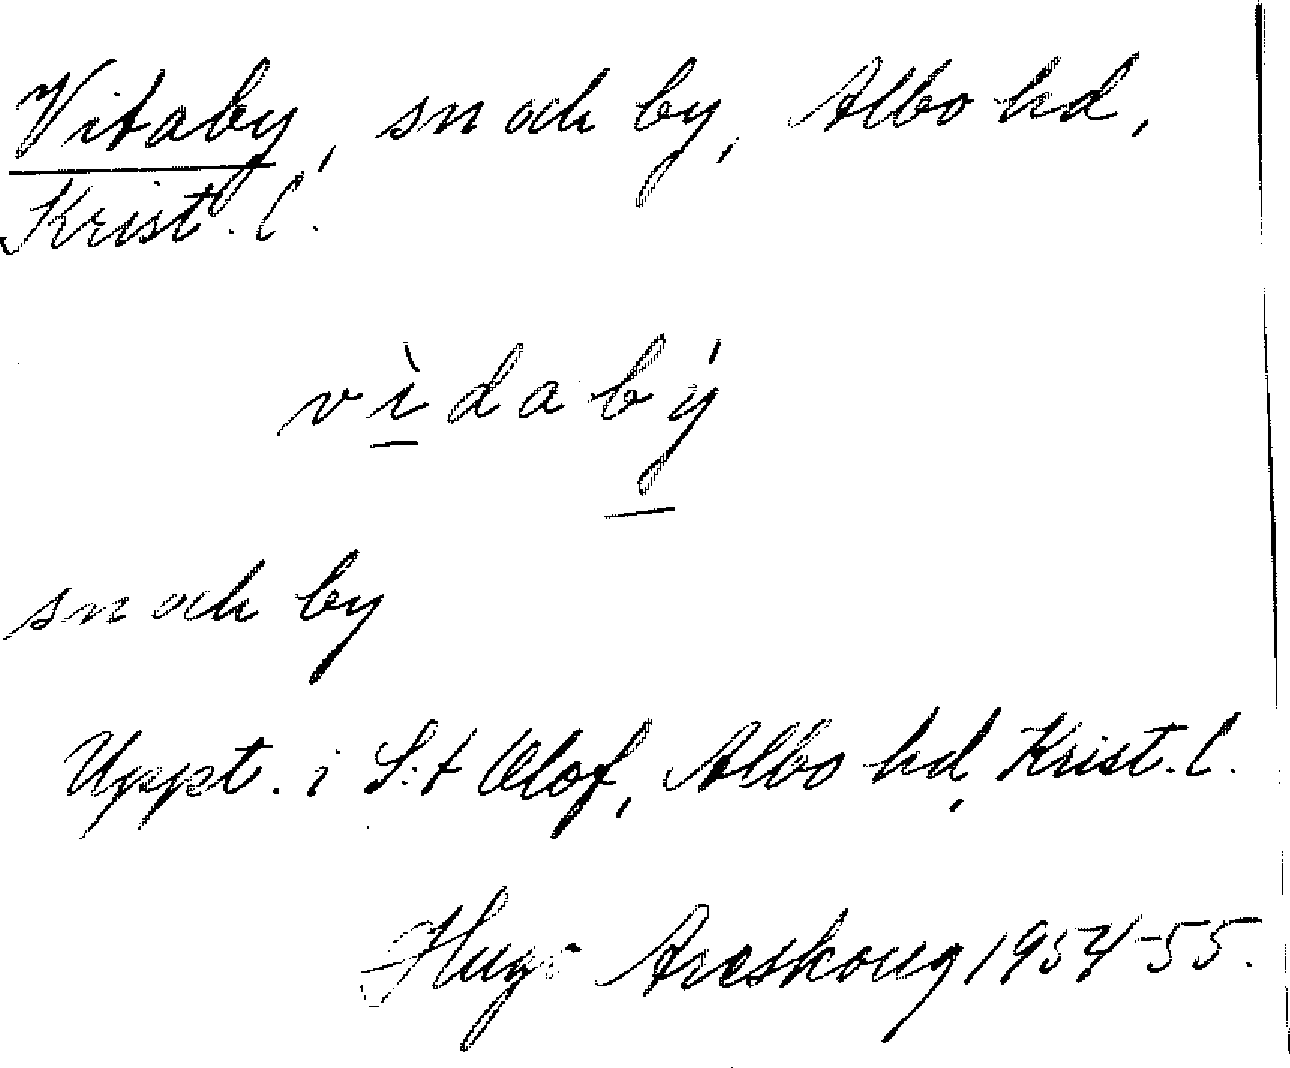 Vitaby, sn och by, Albo hd,
Krist. l.
vìdabý
sn och by
Uppt. i S:t Olof, Albo hd, Krist. l.
Hugo Areskoug 1954-55.